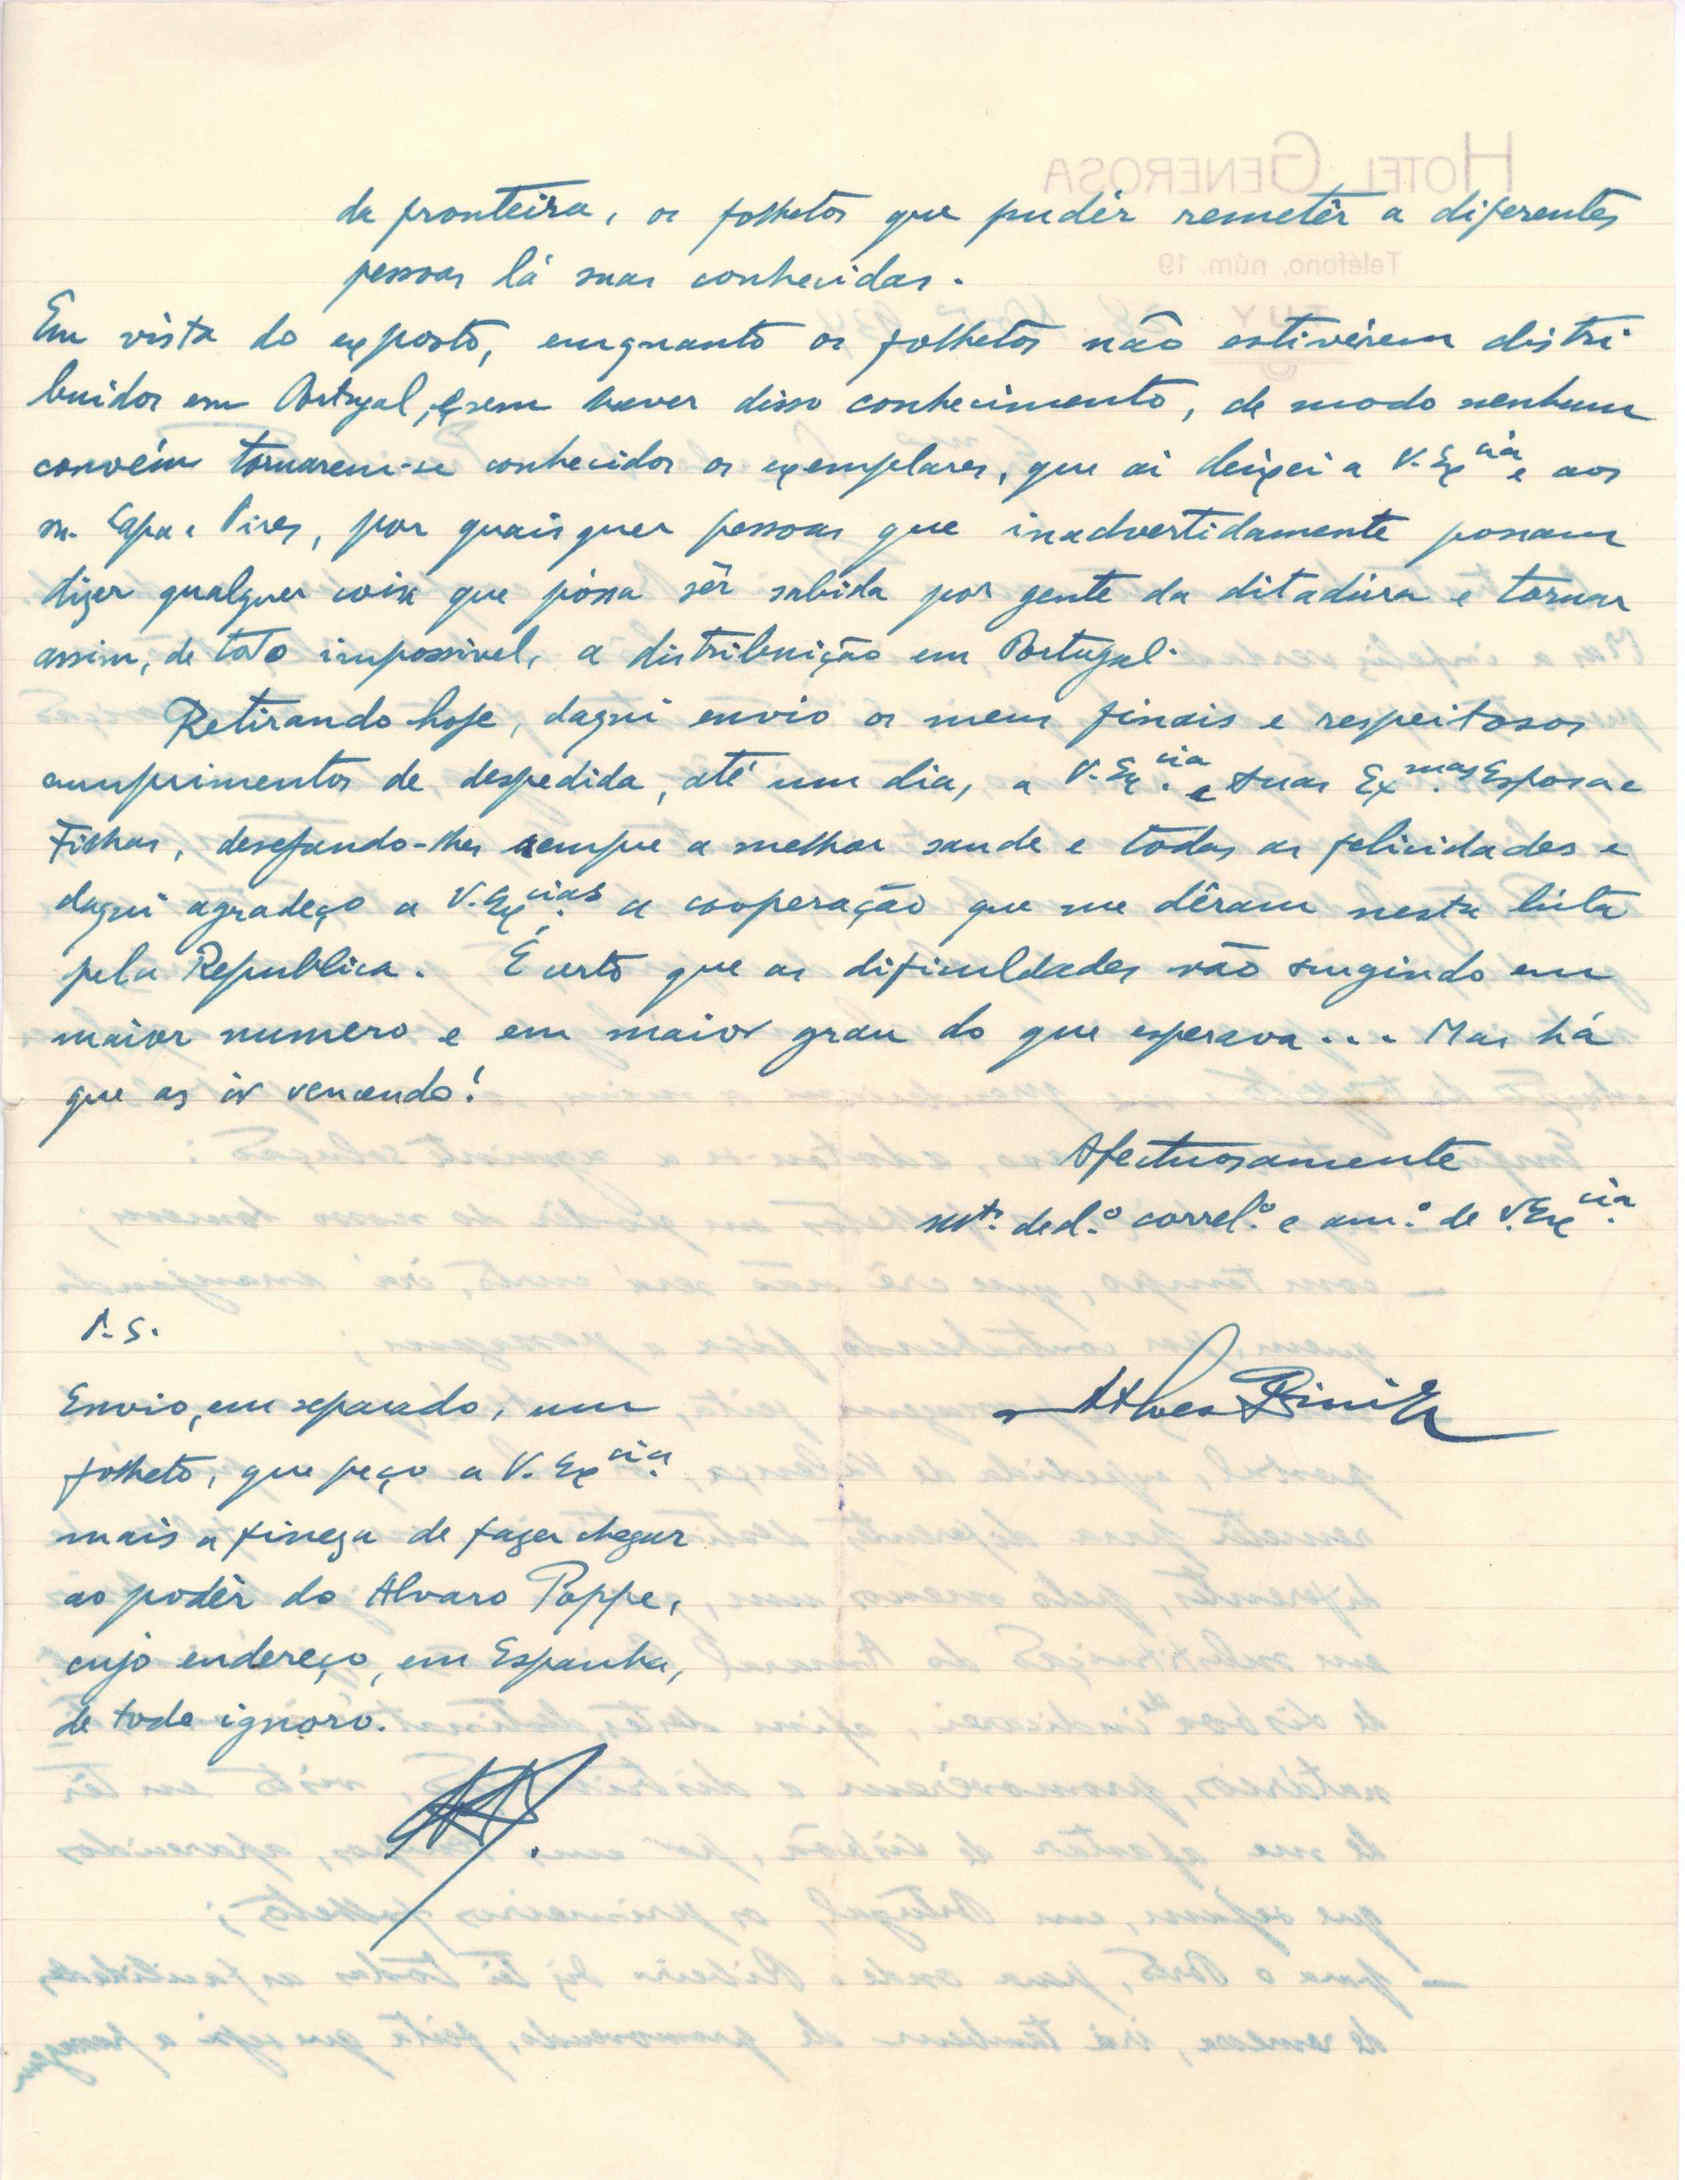 da fronteira, os folhetos que pudér remetêr a diferentes
pessoas lá suas conhecidas.
Em vista do exposto, emquanto os folhetos não estivérem distri
buidos em Portugal, e sem haver disso conhecimento, de modo nenhum
convém tornarem-se conhecidos os exemplares, que ai deixei a V. Ex.cia e aos
srs. Capa e Pires, por quaisquer pessoas que inadvertidamente possam
dizer qualquer coisa que póssa sêr sabida por gente da ditadura e tornar
assim, de todo impossivel, a distribuição em Portugal.
Retirando hoje, daqui envio os meus finais e respeitosos
cumprimentos de despedida, até um dia, a V. Ex.cia e suas Ex.mas Esposa e
Filhas, desejando-lhes sempre a melhor saude e todas as felicidades e
daqui agradeço a V. Ex.cias a cooperação que me déram nesta luta
pela Republica. É certo que as dificuldades vão surgindo em
maior numero e em maior grau do que esperava... Mas há
que as ir vencendo!
Afectuosamente
de d.º correl.º e am.º de V. Ex.cia
P.S.
Envio, em separado, um
folheto, que peço a V. Ex.cia
mais a fineza de fazer chegar
ao podêr do Alvaro Poppe,
cujo endereço, em Espanha,
de todo ignoro.
HOTEL GENEROSA
Teléfono, núm. 19
TUY